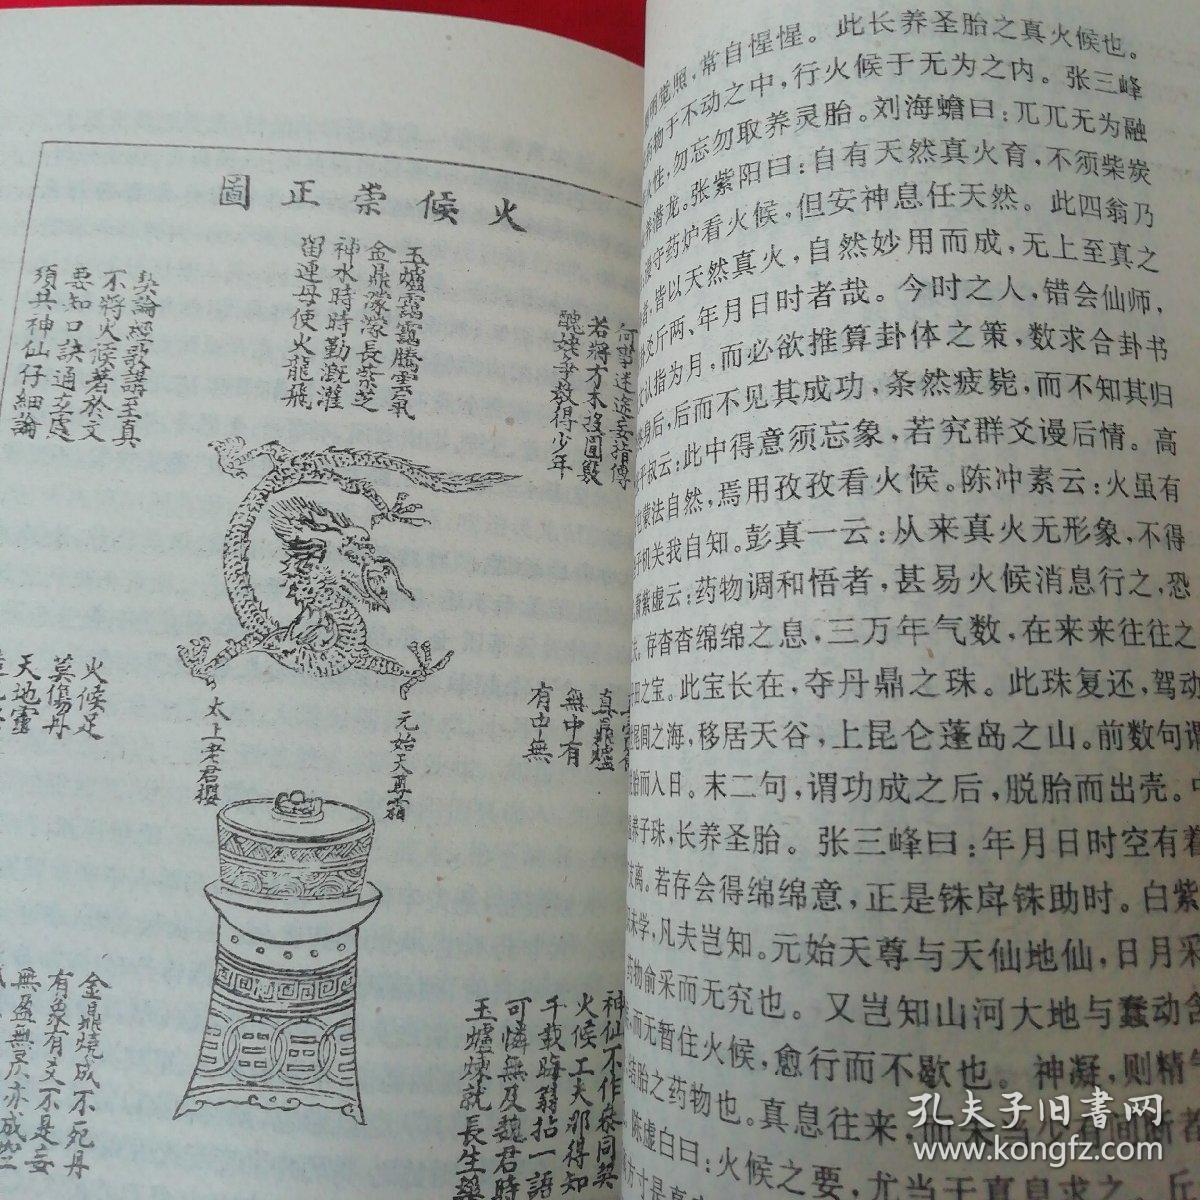 火候崇正圖
契論經歌講至真
不將火候著於文
要知口訣通玄處
須共神仙仔細論
玉爐靄靄騰雲氣
金鼎濛濛長紫芝
神水時時勤溉灌
留連毋使火龍飛
何事迷途妄指傳
若將方本投圓竅
醜姥年教得少年
火候足
莫傷丹
天地靈
太上老君
元始天尊
真鼎爐
無中有
有中無
金鼎燒成不死丹
有象有爻不是妄
神仙不作參同契
火候工夫那得知
千載晦翁拈一語
可憐無及魏君時
玉爐煉就長生藥
觉照，常自惺惺。此长养圣胎之真火候也。
物于不动之中，行火候于无为之内。张三峰
火性，勿忘勿取养灵胎。刘海蟾曰：兀兀无为融
潜龙。张紫阳曰：自有天然真火育，不须柴炭
守药炉看火候，但安神息任天然。此四翁乃
皆以天然真火，自然妙用而成，无上至真之
爻斤两、年月日时者哉。今时之人，错会仙师，
认指为月，而必欲推算卦体之策，数求合卦书
身后，后而不见其成功，条然疲毙，而不知其归
平叔云：此中得意须忘象，若究群爻谩后情。高
蒙法自然，焉用孜孜看火候。陈冲素云：火虽有
机关我自知。彭真一云：从来真火无形象，不得
萧紫虚云：药物调和悟者，甚易火候消息行之，恐
存杳杳绵绵之息，三万年气数，在来来往往之
田之宝。此宝长在，夺丹鼎之珠。此珠复还，驾动
尾间之海，移居天谷，上昆仑蓬岛之山。前数句谓
胎而入日。末二句，谓功成之后，脱胎而出壳。
养子珠，长养圣胎。张三峰曰：年月日时空有着
支离。若存会得绵绵意，正是铢
铢助时。白紫
未学，凡夫岂知。元始天尊与天仙地仙，日月采
药物偷采而无究也。又岂知山河大地与蠢动含
而无暂住火候，愈行而不歇也。神凝，则精气
结胎之药物也。真息往来，而未当少有间断者
陈虚白曰：火候之要，尤当于真息求之。丘
方寸是真
孔夫子旧书网
www.kongfz.com